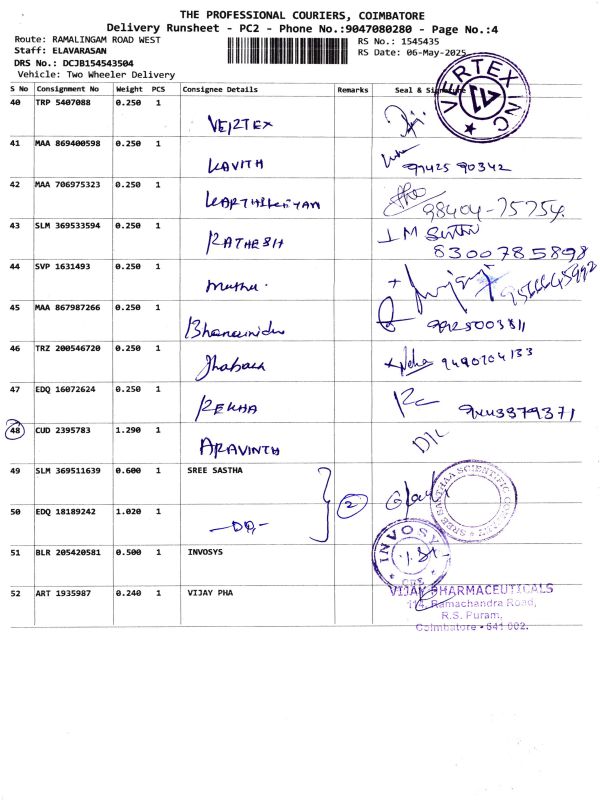 THE PROFESSIONAL COURIERS, COIMBATORE
Delivery Runsheet - PC2 - Phone No.:9047080280 - Page No.:4
Route: RAMALINGAM ROAD WEST
RS No.: 1545435
Staff: ELAVARASAN
RS Date: 06-May-2025
DRS No.: DCJB154543504
Vehicle: Two Wheeler Delivery
VERTEX INC
S No Consignment No Weight PCS Consignee Details Remarks Seal & Signature
40 TRP 5407088 0.250 1 VERTEX
41 MAA 869400598 0.250 1 KAVITH 97425 90342
42 MAA 706975323 0.250 1 KARTHIKEYAN 98404-75754
43 SLM 369533594 0.250 1 RATHESH
8300785898
44 SVP 1631493 0.250 1 muthu.
45 MAA 867987266 0.250 1 9925003811
46 TRZ 200546720 0.250 1 Neha 9490704133
47 EDQ 16072624 0.250 1 REKHA 9443379371
48 CUD 2395783 1.290 1 ARAVINTH
49 SLM 369511639 0.600 1 SREE SASTHA
2
SREE SASTHAA SCIENTIFIC
50 EDQ 18189242 1.020 1 -DO-
51 BLR 205420581 0.500 1 INVOSYS
INVOSY
CBE
52 ART 1935987 0.240 1 VIJAY PHA
VIJAY PHARMACEUTICALS
114, Ramachandra Road,
R.S. Puram,
Coimbatore - 641 002.